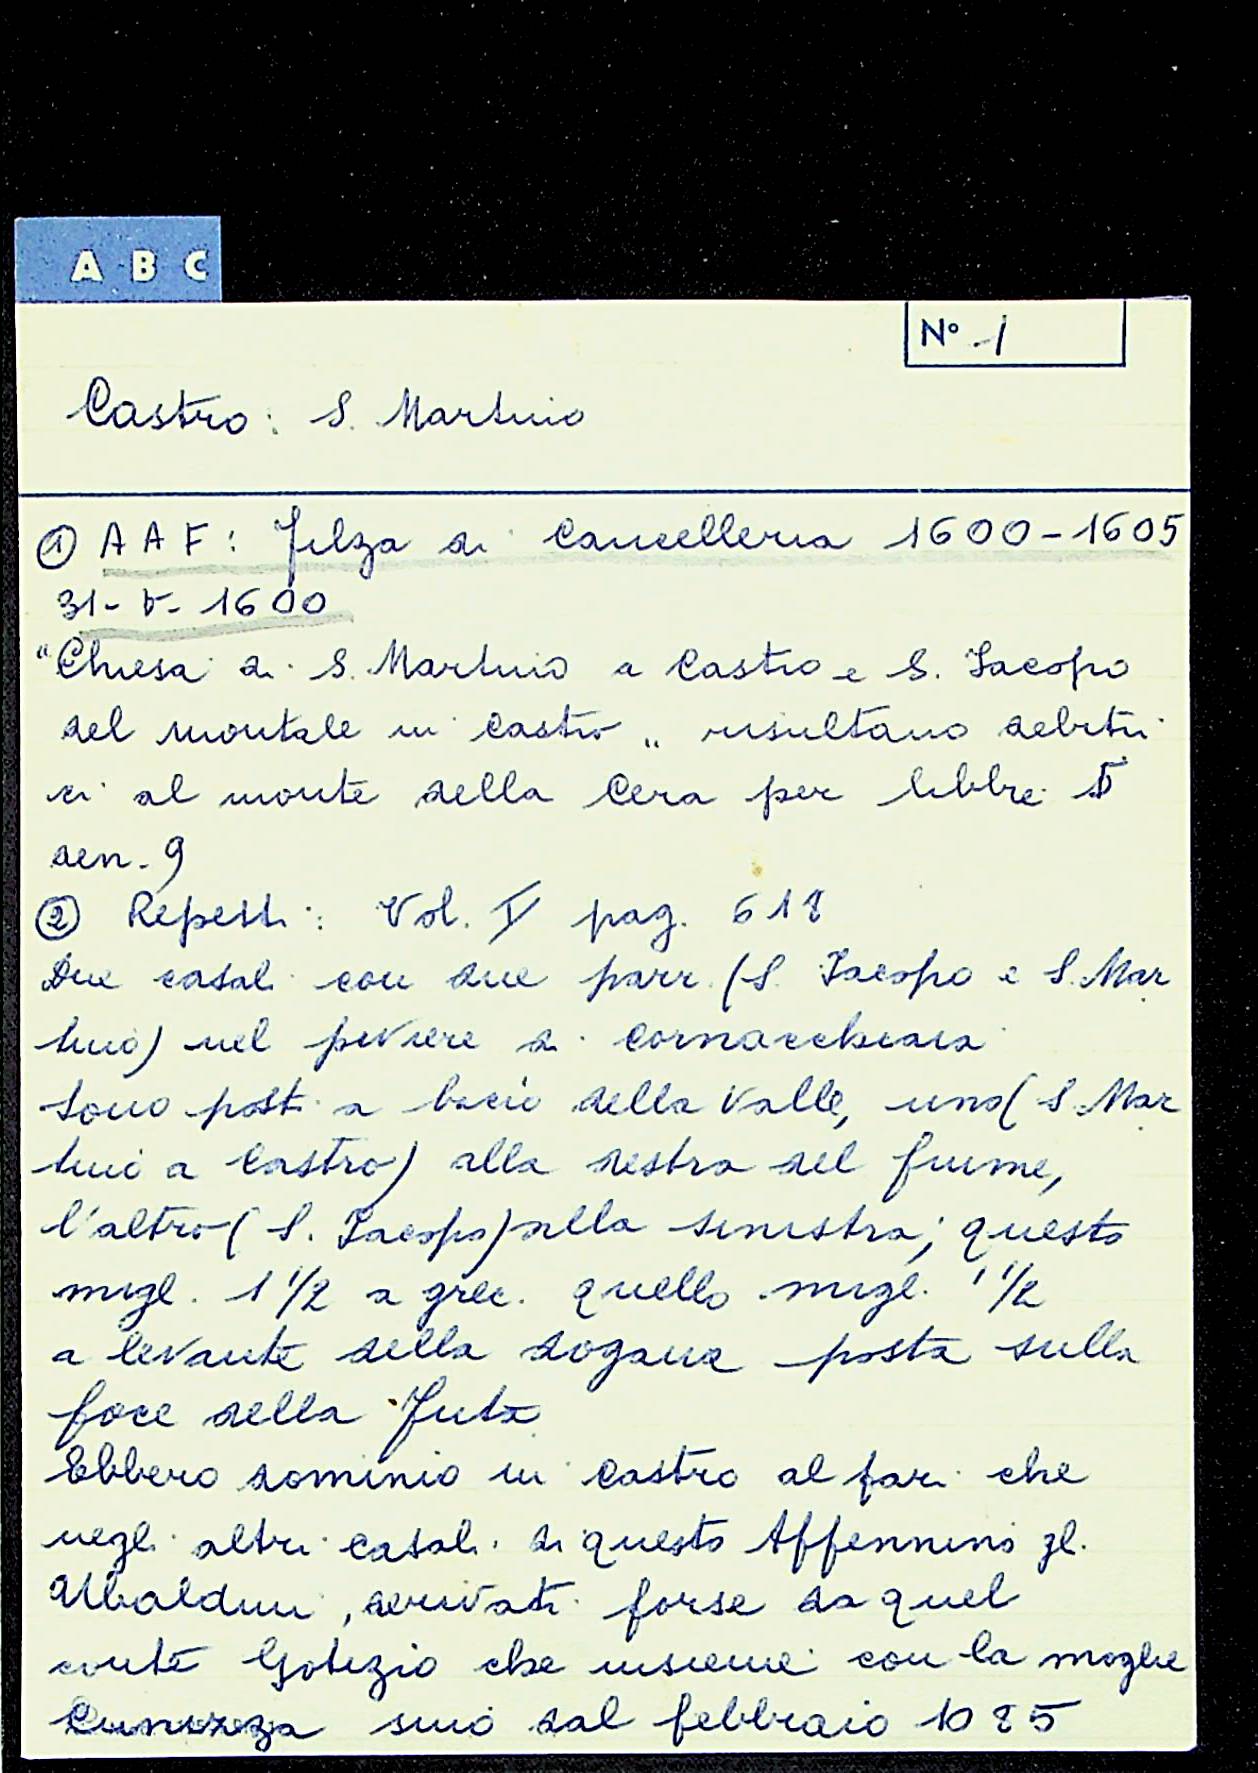 A B C
N° 1
Castro: S. Martino
① A A F: Filza di Cancelleria 1600-1605
31-V-1600
"Chiesa di S. Martino a Castro e S. Iacopo
del montale in Castro" risultano debitri
ci al monte della Cera per libbre 5
den. 9
② Repetti: Vol. V pag. 618
Due casali con due parr. (S. Iacopo e S. Mar
tino) nel piviere di Cornacchiaia
Sono posti a bacio della Valle, uno (S. Mar
tino a Castro) alla destra del fiume,
l'altro (S. Iacopo) alla sinistra; questo
migl. 1 1/2 a grec. quello migl. 1 1/2
a levante della dogana posta sulla
foce della Futa
Ebbero dominio in Castro al pari che
negli altri casali di questo Appennino gl.
Ubaldini, derivati forse da quel
conte Gotizio che insieme con la moglie
Cunizza sino dal febbraio 1085